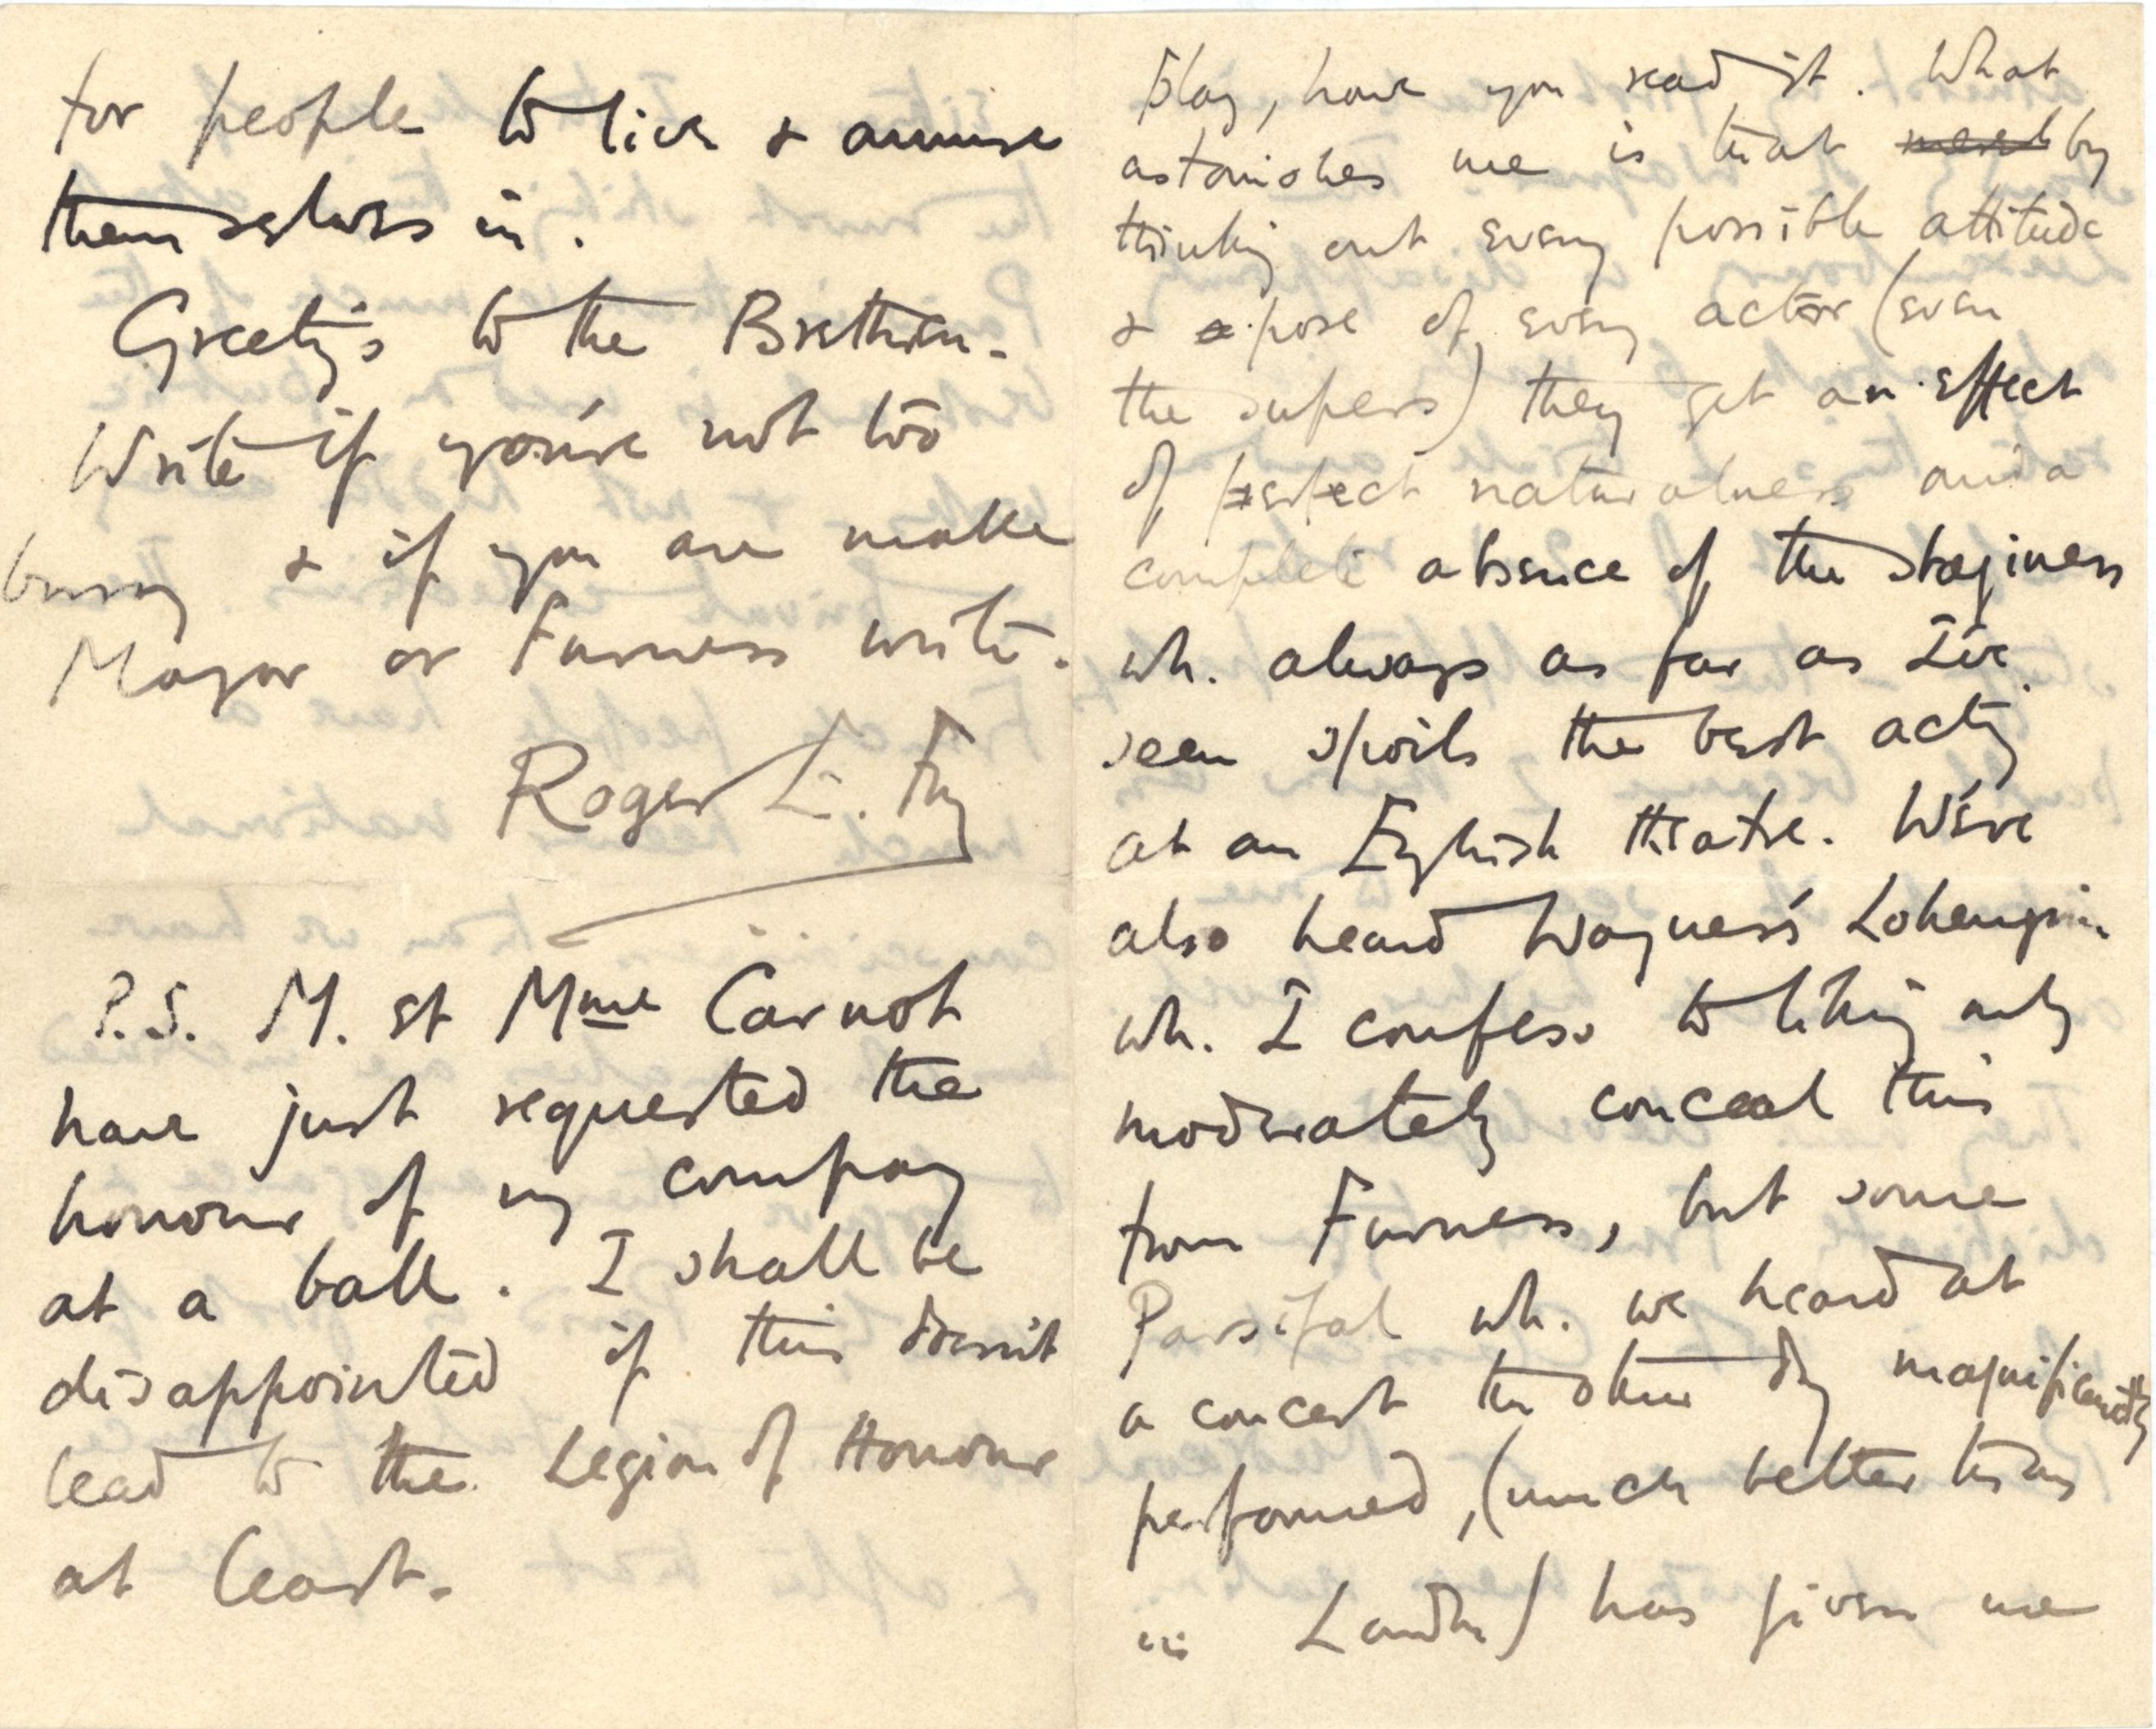 for people to live & amuse
themselves in.
Greetings to the Brethren.
Write if you're not too
busy & if you are make
Mayor or Furness write.
Roger E. Fry
P.S. M. et Mme Carnot
have just requested the
honour of my company
at a ball. I shall be
disappointed if this doesn't
lead to the Legion of Honour
at least.
play, have you read it. What
astonishes me is that by
thinking out every possible attitude
& pose of every actor (even
the supers) they get an effect
of perfect naturalness and a
complete absence of the staginess
wh. always as far as I've
seen spoils the best acting
at an English theatre. We've
also heard Wagner's Lohengrin
wh. I confess to liking only
moderately conceal this
from Furness, but some
Parsifal wh. we heard at
a concert the other day magnificently
performed, (much better than
in London) has given me